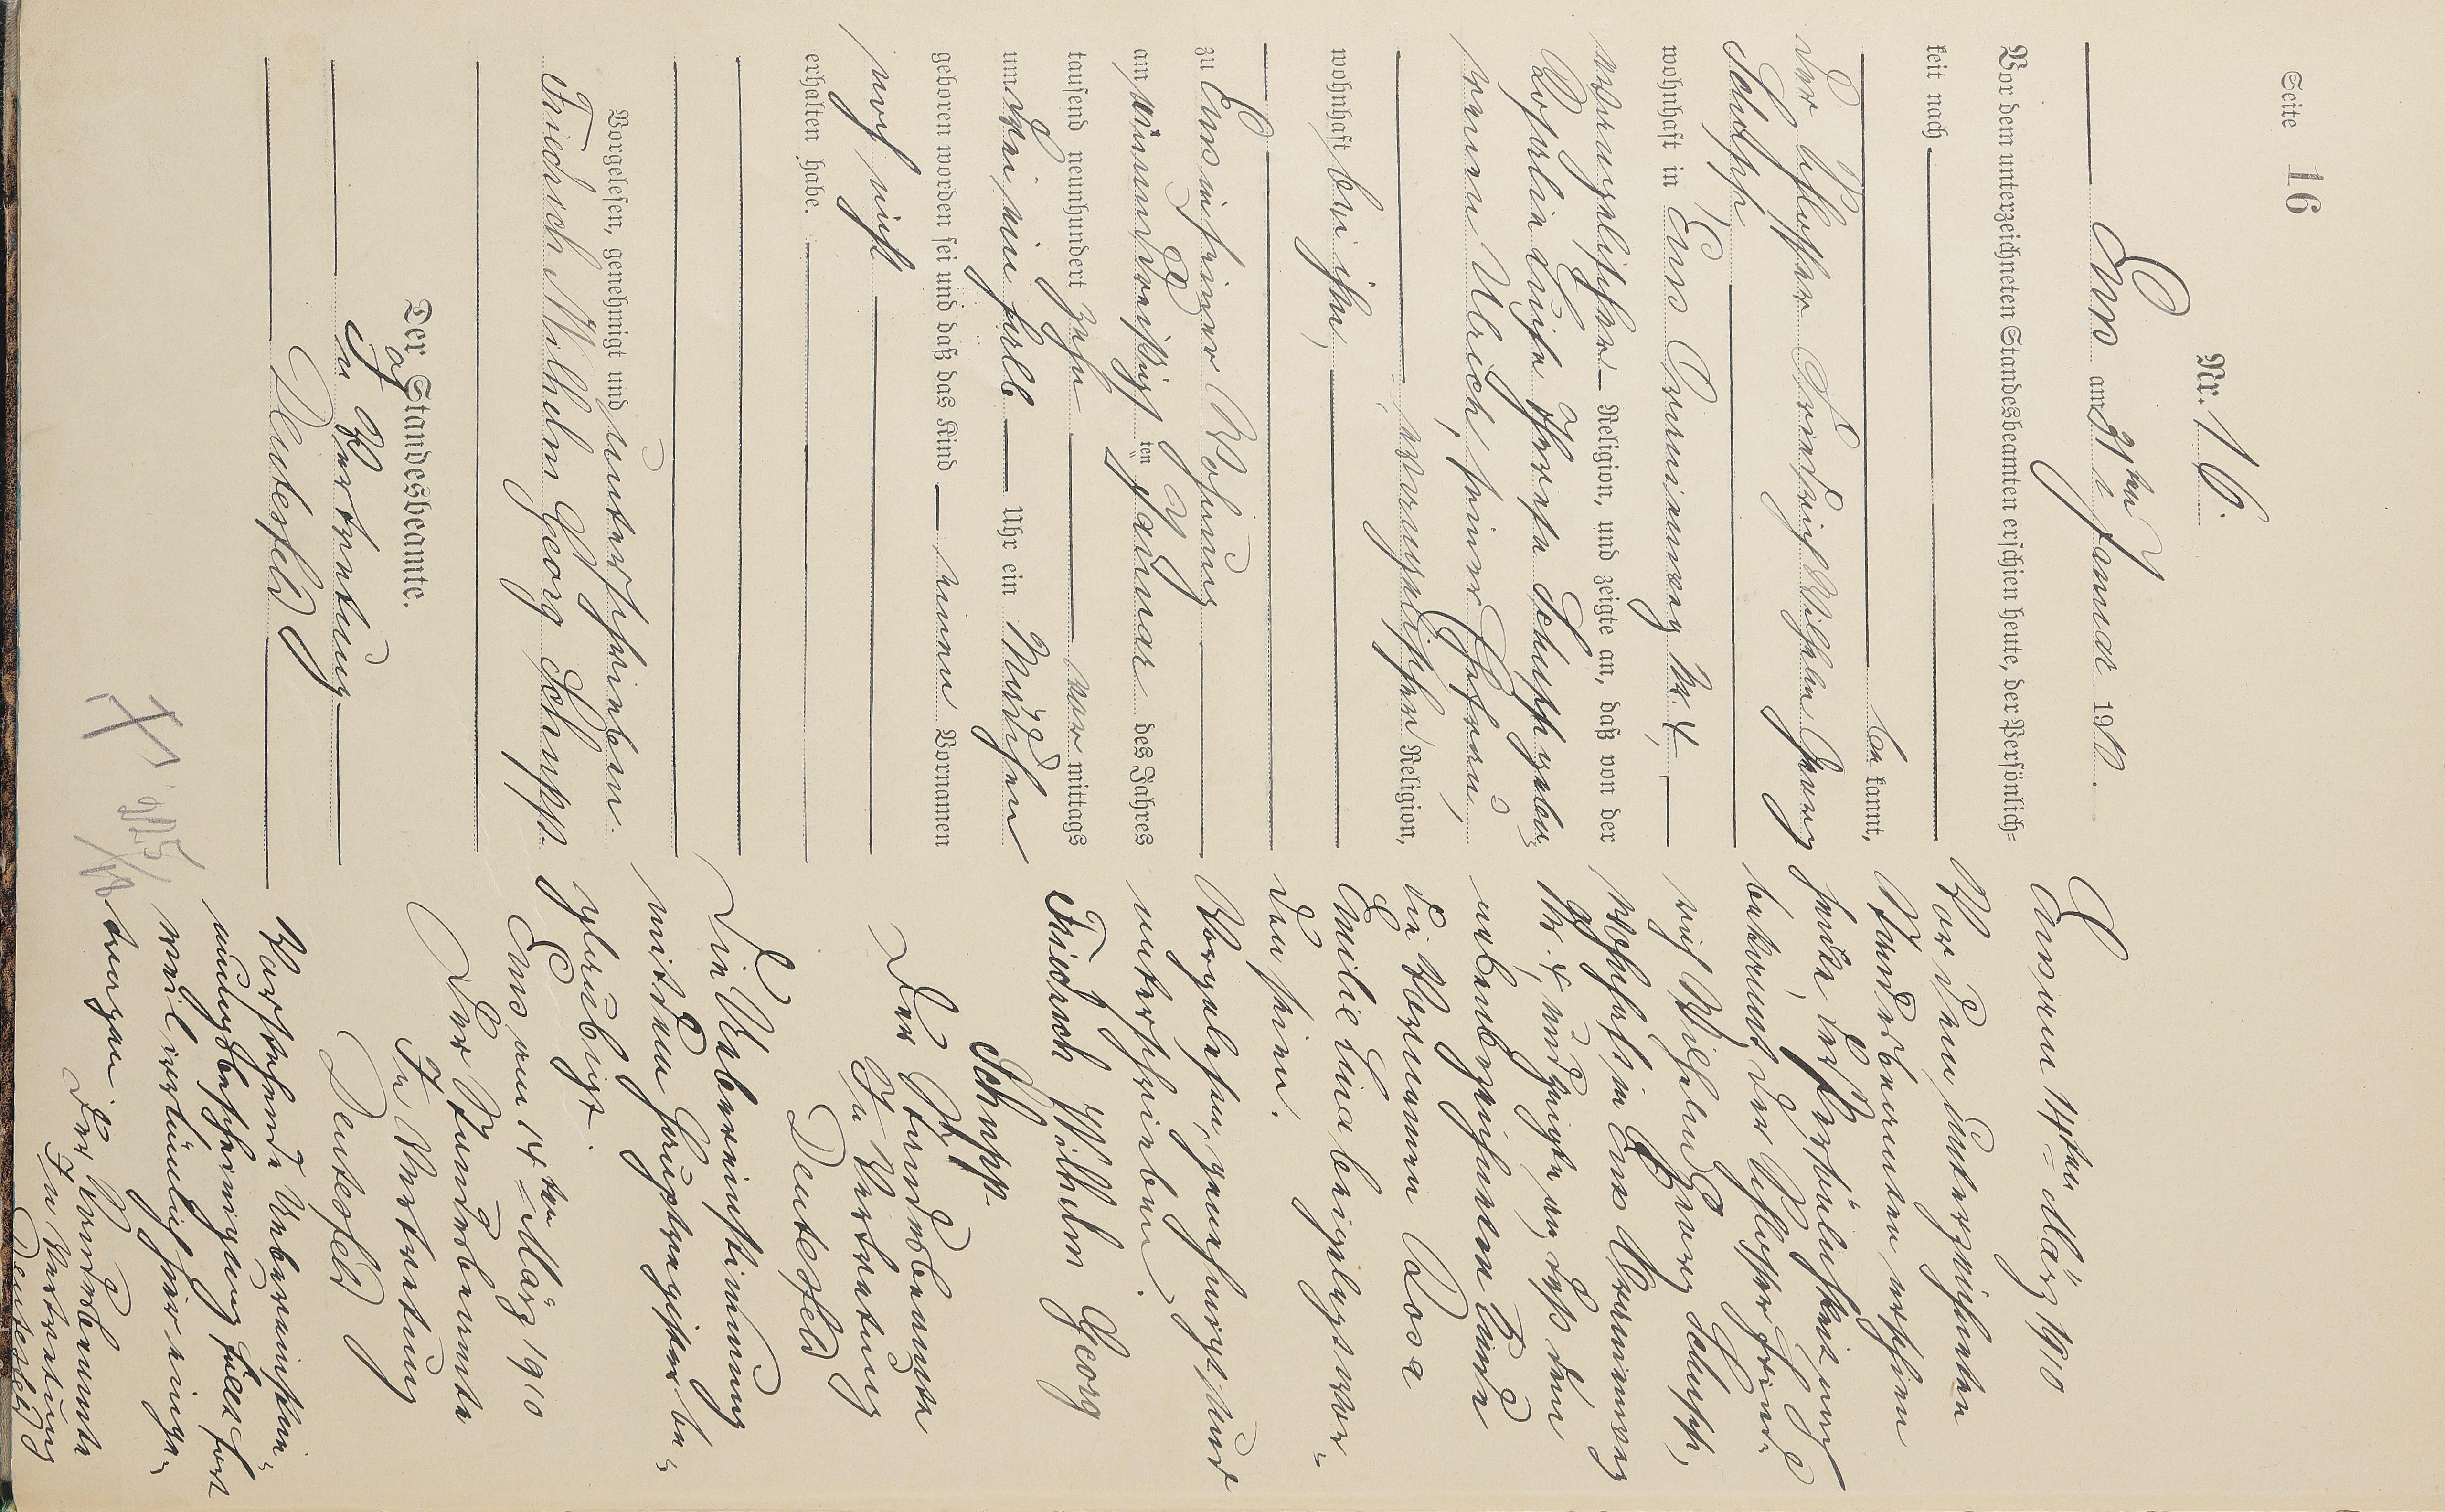 Seite 16
Nr. 16.
Ems am 31ten Januar 1910.
Vor dem unterzeichneten Standesbeamten erschien heute, der Persönlich-
keit nach
be kannt,
der Schlosser Friedrich Wilhelm Georg
Schupp,
wohnhaft in Ems Braunweg Nr. 4,
evangelischer Religion, und zeigte an, daß von der
Luise Schupp gebo-
renen Ulrich, seiner Ehefrau,
evangelischer Religion,
wohnhaft bei ihm,
zu Ems in seiner Wohnung
am einunddreißigsten Januar des Jahres
tausend neunhundert zehn vor mittags
um drei ein halb Uhr ein Mädchen
geboren worden sei und daß das Kind einen Vornamen
noch nicht
erhalten habe.
Vorgelesen, genehmigt und unterschrieben.
Friedrich Wilhelm Georg Schupp.
Der Standesbeamte.
In Vertretung
Deutesfeld
Ems am 14ten März 1910
Vor dem unterzeichneten
Standesbeamten erschien
heute, der Persönlichkeit nach
bekannt, der Schlosser Fried-
rich Wilhelm Georg Schupp,
wohnhaft in Ems Braunweg
Nr. 4, und zeigte an, daß dem
nebenbezeichneten Kinde
die Vornamen Rosa
Emilie Lina beigelegt wor-
den seien.
Vorgelesen, genehmigt und
unterschrieben.
Friedrich Wilhelm Georg
Schupp.
Der Standesbeamte
In Vertretung
Deutesfeld
Die Uebereinstimmung
mit dem Hauptregister be-
glaubigt.
Ems, am 14ten März 1910
Der Standesbeamte
In Vertretung
Deutesfeld
Vorstehende Uebereinstim-
mungsbescheinigung fällt fort
weil irrtümlich hier einge-
tragen.
Der Standesbeamte
In Vertretung
Deutesfeld